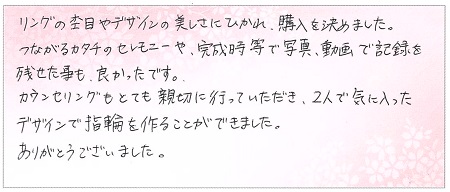 リングの杢目やデザインの美しさにひかれ、購入を決めました。
つながるカタチのセレモニーや、完成時等で写真、動画で記録を
残せた事も、良かったです。
カウンセリングもとても親切に行っていただき、2人で気に入った
デザインで指輪を作ることができました。
ありがとうございました。